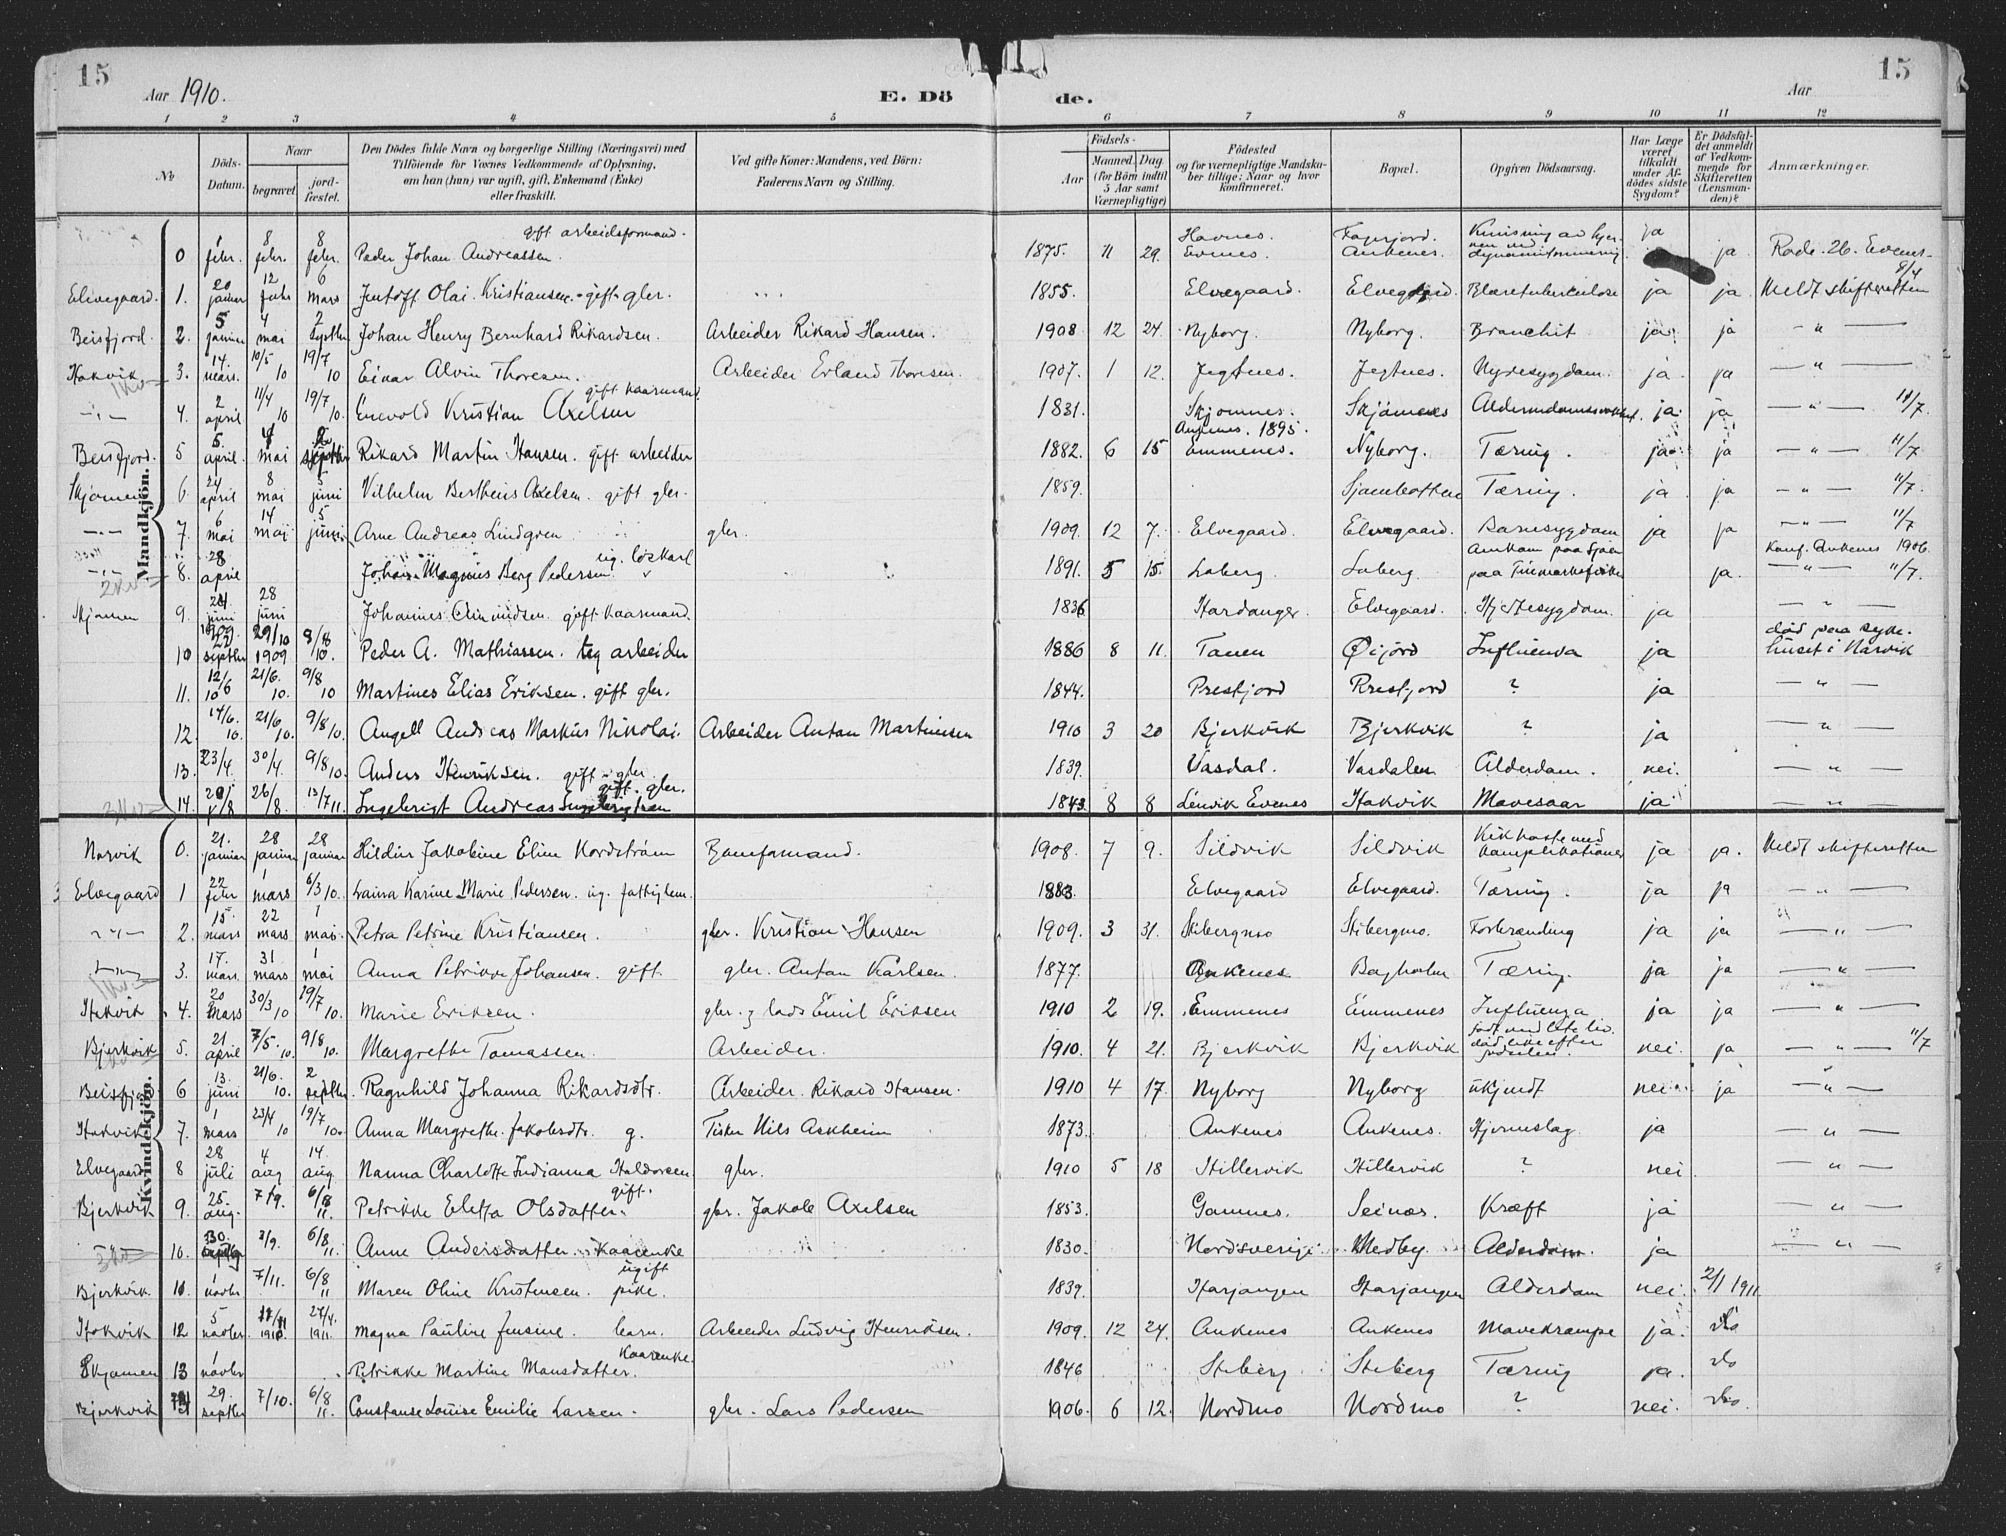 15
15
Aar 1910.
E. Dö
de.
Aar
1 2 3 4 5 6 7 8 9 10 11 12
No
Döds-Datum.
Naar
begravet.
jord-fæstet.
Den Dödes fulde Navn og borgerlige Stilling (Næringsvei) med
Tilföiende for Voxnes Vedkommende af Oplysning,
om han (hun) var ugift, gift, Enkemand (Enke)
eller fraskilt.
Ved gifte Koner: Mandens, ved Börn:
Faderens Navn og Stilling.
Födsels-
Aar
Maaned. Dag.
(for Börn indtil
5 Aar samt
Værnepligtige)
Födested
og for værnepligtige Mandska-
ber tillige: Naar og hvor
konfirmeret.
Bopæl.
Opgiven Dödsaarsag.
Har Læge
været
tilkaldt
under Af-
dödes sidste
Sygdom?
Er Dödsfal-
det anmeldt
af Vedkom-
mende for
Skifteretten
(Lensman-
den)?
Anmærkninger.
Mandkjön.
gift arbeidsformand.
0 1 febr. 8 febr. 8 febr. Peder Johan Andreassen. 1875. 11 29. Havnes. Evenes. Fagerjord. Ankenes. ja ja. Rode. 26. Evenes.
Elvegaard. 1. 20 januar 12 febr 6 mars Jentoft Olai Kristiansen. gift gbr. 1855. Elvegaard. Elvegaard. Blæretuberkulose ja ja. Meldt skifteretten 8/4
Beisfjord. 2. 5 januar 4 mai 2 septbr Johan Henry Bernhard Rikardsen. Arbeider Rikard Hansen. 1908 12 24. Nyborg. Nyborg. Bronchit ja. ja — " —
Hakvik 3. 14. mars. 10/5 10 19/7 10 Einar Alvin Thoresen. Arbeider Erland Thoresen. 1907. 1 12. Jegtnes. Jegtnes. Nyresygdom. ja. ja — " —
— " — 4. 2 april 11/4 10 19/7 10. Enevold Kristian Axelsen gift kaarmand. 1831. Skjomnes. Skjomnes ja. ja — " — 11/7.
Beisfjord. 5 5. april. mai septbr Rikard Martin Hansen. gift arbeider 1882. 6 15 Ankenes. 1895. Emmenes. Nyborg. Tæring. ja. ja — " — 11/7
Skjomen 6. 24 april 8 mai 5 juni Vilhelm Bertheus Axelsen. gift gbr. 1859. Sjombotten Tæring. ja. ja — " — 11/7.
— " — 7. 6 mai 14 mai 5 juni. Arne Andreas Lindgren gbr. 1909. 12 7. Elvegaard. Elvegaard. Barnesygdom ja ja — " — 11/7
— " — 8. 28 april Johan Magnus Berg Pedersen ug. löskarl 1891. 5 15. Laberg. Laberg. Omkom paa Sjøen paa Finmarksfiske ja. Konf. Ankenes 1906. — " — 11/7.
Skjomen 9. 24. juni 28 juni Johannes Amundsen gift kaarmand. 1836 Hardanger. Elvegaard. Hjertesygdom. ja — " —
10 1909. 22 septbr 29/10 1909 8/8 10. Peder A. Mathiassen. ug arbeider 1886 8 11. Tanen Øijord Influenza ja död paa syke-huset i Narvik
11. 12/6 10 21/6. 10. 9/8 10 Martines Elias Eriksen. gift gbr. 1844. Presfjord Presfjord ? ja — " —
12. 14/6. 10. 21/6 10. 9/8 10. Angell Andreas Markus Nikolai. Arbeider Anton Martinsen 1910 3 20 Bjerkvik Bjerkvik ? ja — " —
13. 23/4. 30/4. 9/8 10. Anders Henriksen. gift gbr. 1839. Vasdal. Vasdalen Alderdom. nei. — " —
14. 26/8. 13/7 11. Ingebrigt Andreas Ingebrigtsen gift. gbr. 1843. 8 8 Lenvik Evenes Hakvik Mavesaar ja. — " —
Kvindekjön.
Narvik 0. 21. januar 28 januar 28 januar Hildur Jakobine Elin Nordström Bomfomand. 1908. 7 9. Sildvik Sildvik Kikhoste med komplikationer ja ja. Meldt skifteretten
Elvegaard 1 22 febr 1 mars 6/3 10. Laura Karine Marie Pedersen. ug. fattiglem. 1883. Elvegaard Elvegaard. Tæring. ja ja — " —
— " — 2. 15. mars 22 mars 1 mai. Petra Petrine Kristiansen. gbr. Kristian Hansen 1909. 3 31. Stibergmo Stibergmo. Forbrænding ja ja — " —
3. 17. mars. 31 mars 1 mai Anna Petrikke Johansen. gift. gbr. Anton Karlsen. 1877. Ankenes Bogholm Tæring. ja ja — " —
Hakvik 4. 20 mars 30/3 10 19/7 10. Marie Eriksen. gbr. og lods Emil Eriksen 1910 2 19. Emmenes Emmenes Influenza ja ja — " —
Bjerkvik 5. 21 april 7/5. 10. 9/8 10. Margrethe Tomassen. Arbeider. 1910. 4 21. Bjerkvik Bjerkvik död like efter födselen. nei. ja — " — 11/7
Beisfjord 6 13. juni 21/6. 10. 2 septbr. Ragnhild Johanna Rikardsdtr. Arbeider. Rikard Hansen. 1910 4 17. Nyborg Nyborg ukjendt nei. ja — " —
Hakvik 7. 1 mars 23/4 10 19/7 10. Anna Margrethe Jakobsdtr. g. Tisker Nils Askheim 1873. Ankenes Ankenes. Hjerneslag. ja — " —
Elvegaard 8 28 juli 4 aug 14. aug. Nanna Charlotte Indianna Haldorsen gbr. 1910 5 18 Hillervik Hillervik ? nei — " —
Bjerkvik 9. 25. aug. 7/9. 6/8 11. Petrikke Eletta Olsdatter. gift. gbr. Jakob Axelsen 1853. Gamnes. Seines. Kræft ja — " —
10. 30. 3/9. 6/8 11. Anne Andersdatter. Kaarenke 1830. Nordsverige Medby. Alderdom. ja — " —
Bjerkvik. 10. 1 novbr 7/11. 6/8 11 Maren Oline Kristensen. ugift pike. 1839. Harjangen Harjangen Alderdom nei. 2/1 1911.
Hakvik 12 5 novbr. 1910. 27/4. 1911. Magna Pauline Jensine. barn. Arbeider Ludvig Henriksen. 1909. 12 24. Ankenes Ankenes Mavekrampe ja. do
Skjomen 13 1 novbr Petrikke Martine Monsdatter. Kaarenke. 1846 Stiberg Stiberg Tæring ja. do
Bjerkvik 14 29. septbr 7/10. 6/8 11. Constanse Louise Emilie Larsen. gbr. Lars Pedersen 1906. 6 12. Nordmo Nordmo ? nei. do.